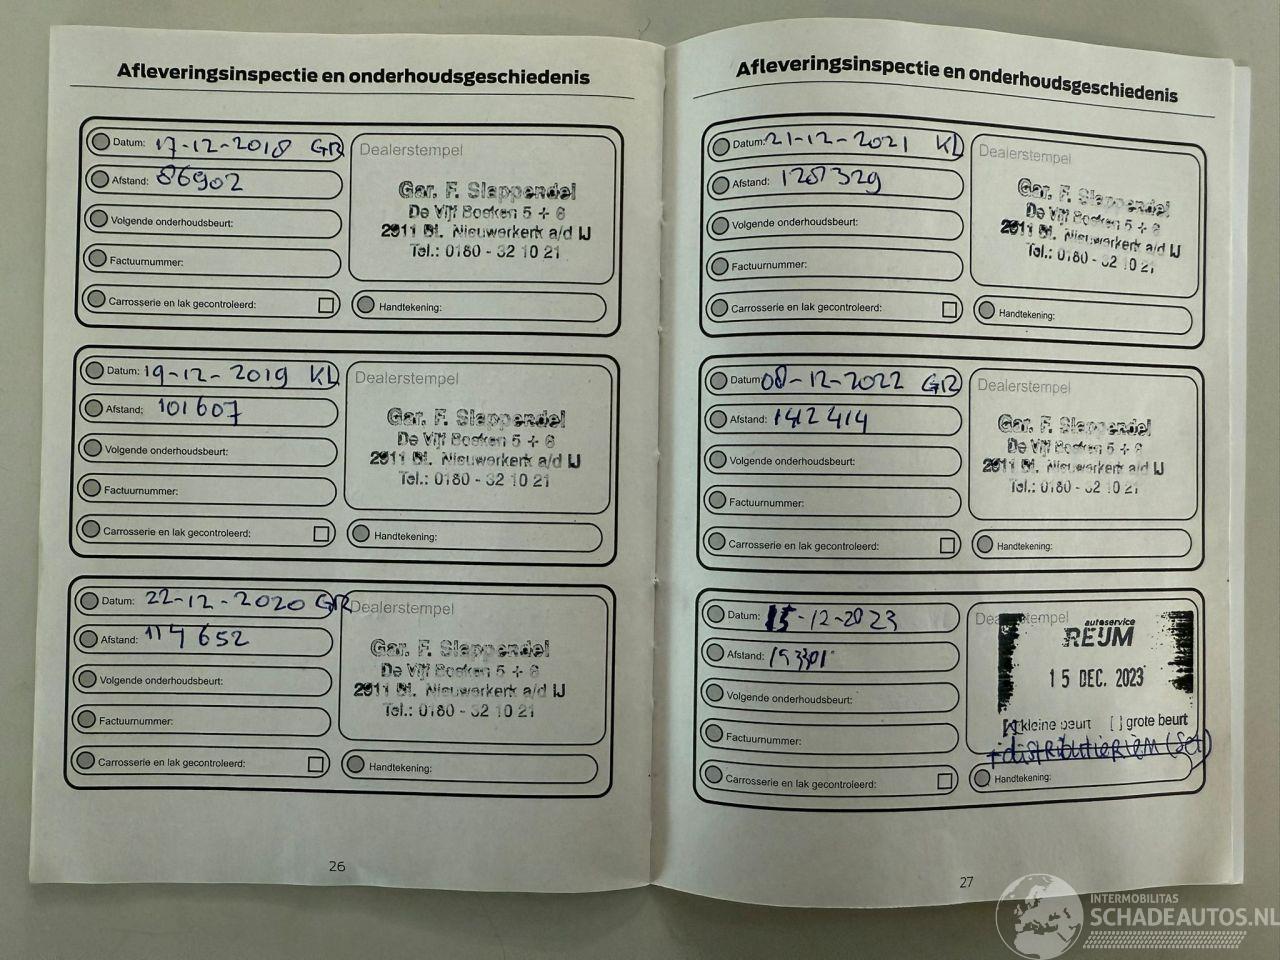 Afleveringsinspectie en onderhoudsgeschiedenis
Datum: 17-12-2018 GR
Afstand: 86902
Volgende onderhoudsbeurt:
Factuurnummer:
Carrosserie en lak gecontroleerd:
Dealerstempel
Gar. F. Slappendel
De Vijf Boeken 5 + 6
2911 BL Nieuwerkerk a/d IJ
Tel.: 0180 - 32 10 21
Handtekening:
Datum: 19-12-2019 KL
Afstand: 101607
Volgende onderhoudsbeurt:
Factuurnummer:
Carrosserie en lak gecontroleerd:
Dealerstempel
Gar. F. Slappendel
De Vijf Boeken 5 + 6
2911 BL Nieuwerkerk a/d IJ
Tel.: 0180 - 32 10 21
Handtekening:
Datum: 22-12-2020 GR
Afstand: 114652
Volgende onderhoudsbeurt:
Factuurnummer:
Carrosserie en lak gecontroleerd:
Dealerstempel
Gar. F. Slappendel
De Vijf Boeken 5 + 6
2911 BL Nieuwerkerk a/d IJ
Tel.: 0180 - 32 10 21
Handtekening:
26
Afleveringsinspectie en onderhoudsgeschiedenis
Datum: 21-12-2021 KL
Afstand:
Volgende onderhoudsbeurt:
Factuurnummer:
Carrosserie en lak gecontroleerd:
Dealerstempel
Gar. F. Slappendel
De Vijf Boeken 5 + 6
2911 BL Nieuwerkerk a/d IJ
Tel.: 0180 - 32 10 21
Handtekening:
Datum: 08-12-2022 GR
Afstand: 142414
Volgende onderhoudsbeurt:
Factuurnummer:
Carrosserie en lak gecontroleerd:
Dealerstempel
Gar. F. Slappendel
De Vijf Boeken 5 + 6
2911 BL Nieuwerkerk a/d IJ
Tel.: 0180 - 32 10 21
Handtekening:
Datum: 15-12-2023
Afstand: 153301
Volgende onderhoudsbeurt:
Factuurnummer:
Carrosserie en lak gecontroleerd:
Dealerstempel
autoservice
REIJM
15 DEC. 2023
[x] kleine beurt [ ] grote beurt
+ distributieriem (set)
Handtekening:
27
INTERMOBILITAS
SCHADEAUTOS.NL